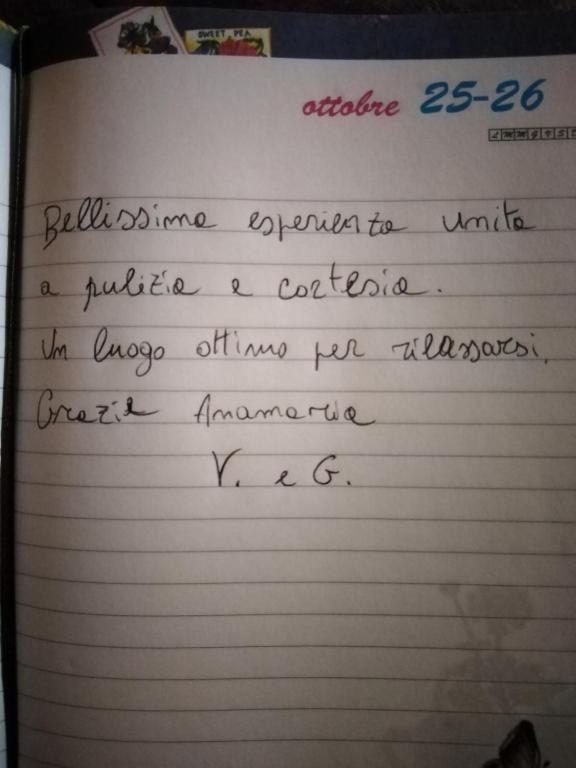 SWEET PEA
ottobre 25-26
L M M G V S D
Bellissima esperienza unita
a pulizia e cortesia.
Un luogo ottimo per rilassarsi.
Grazie Anamaria
V. e G.